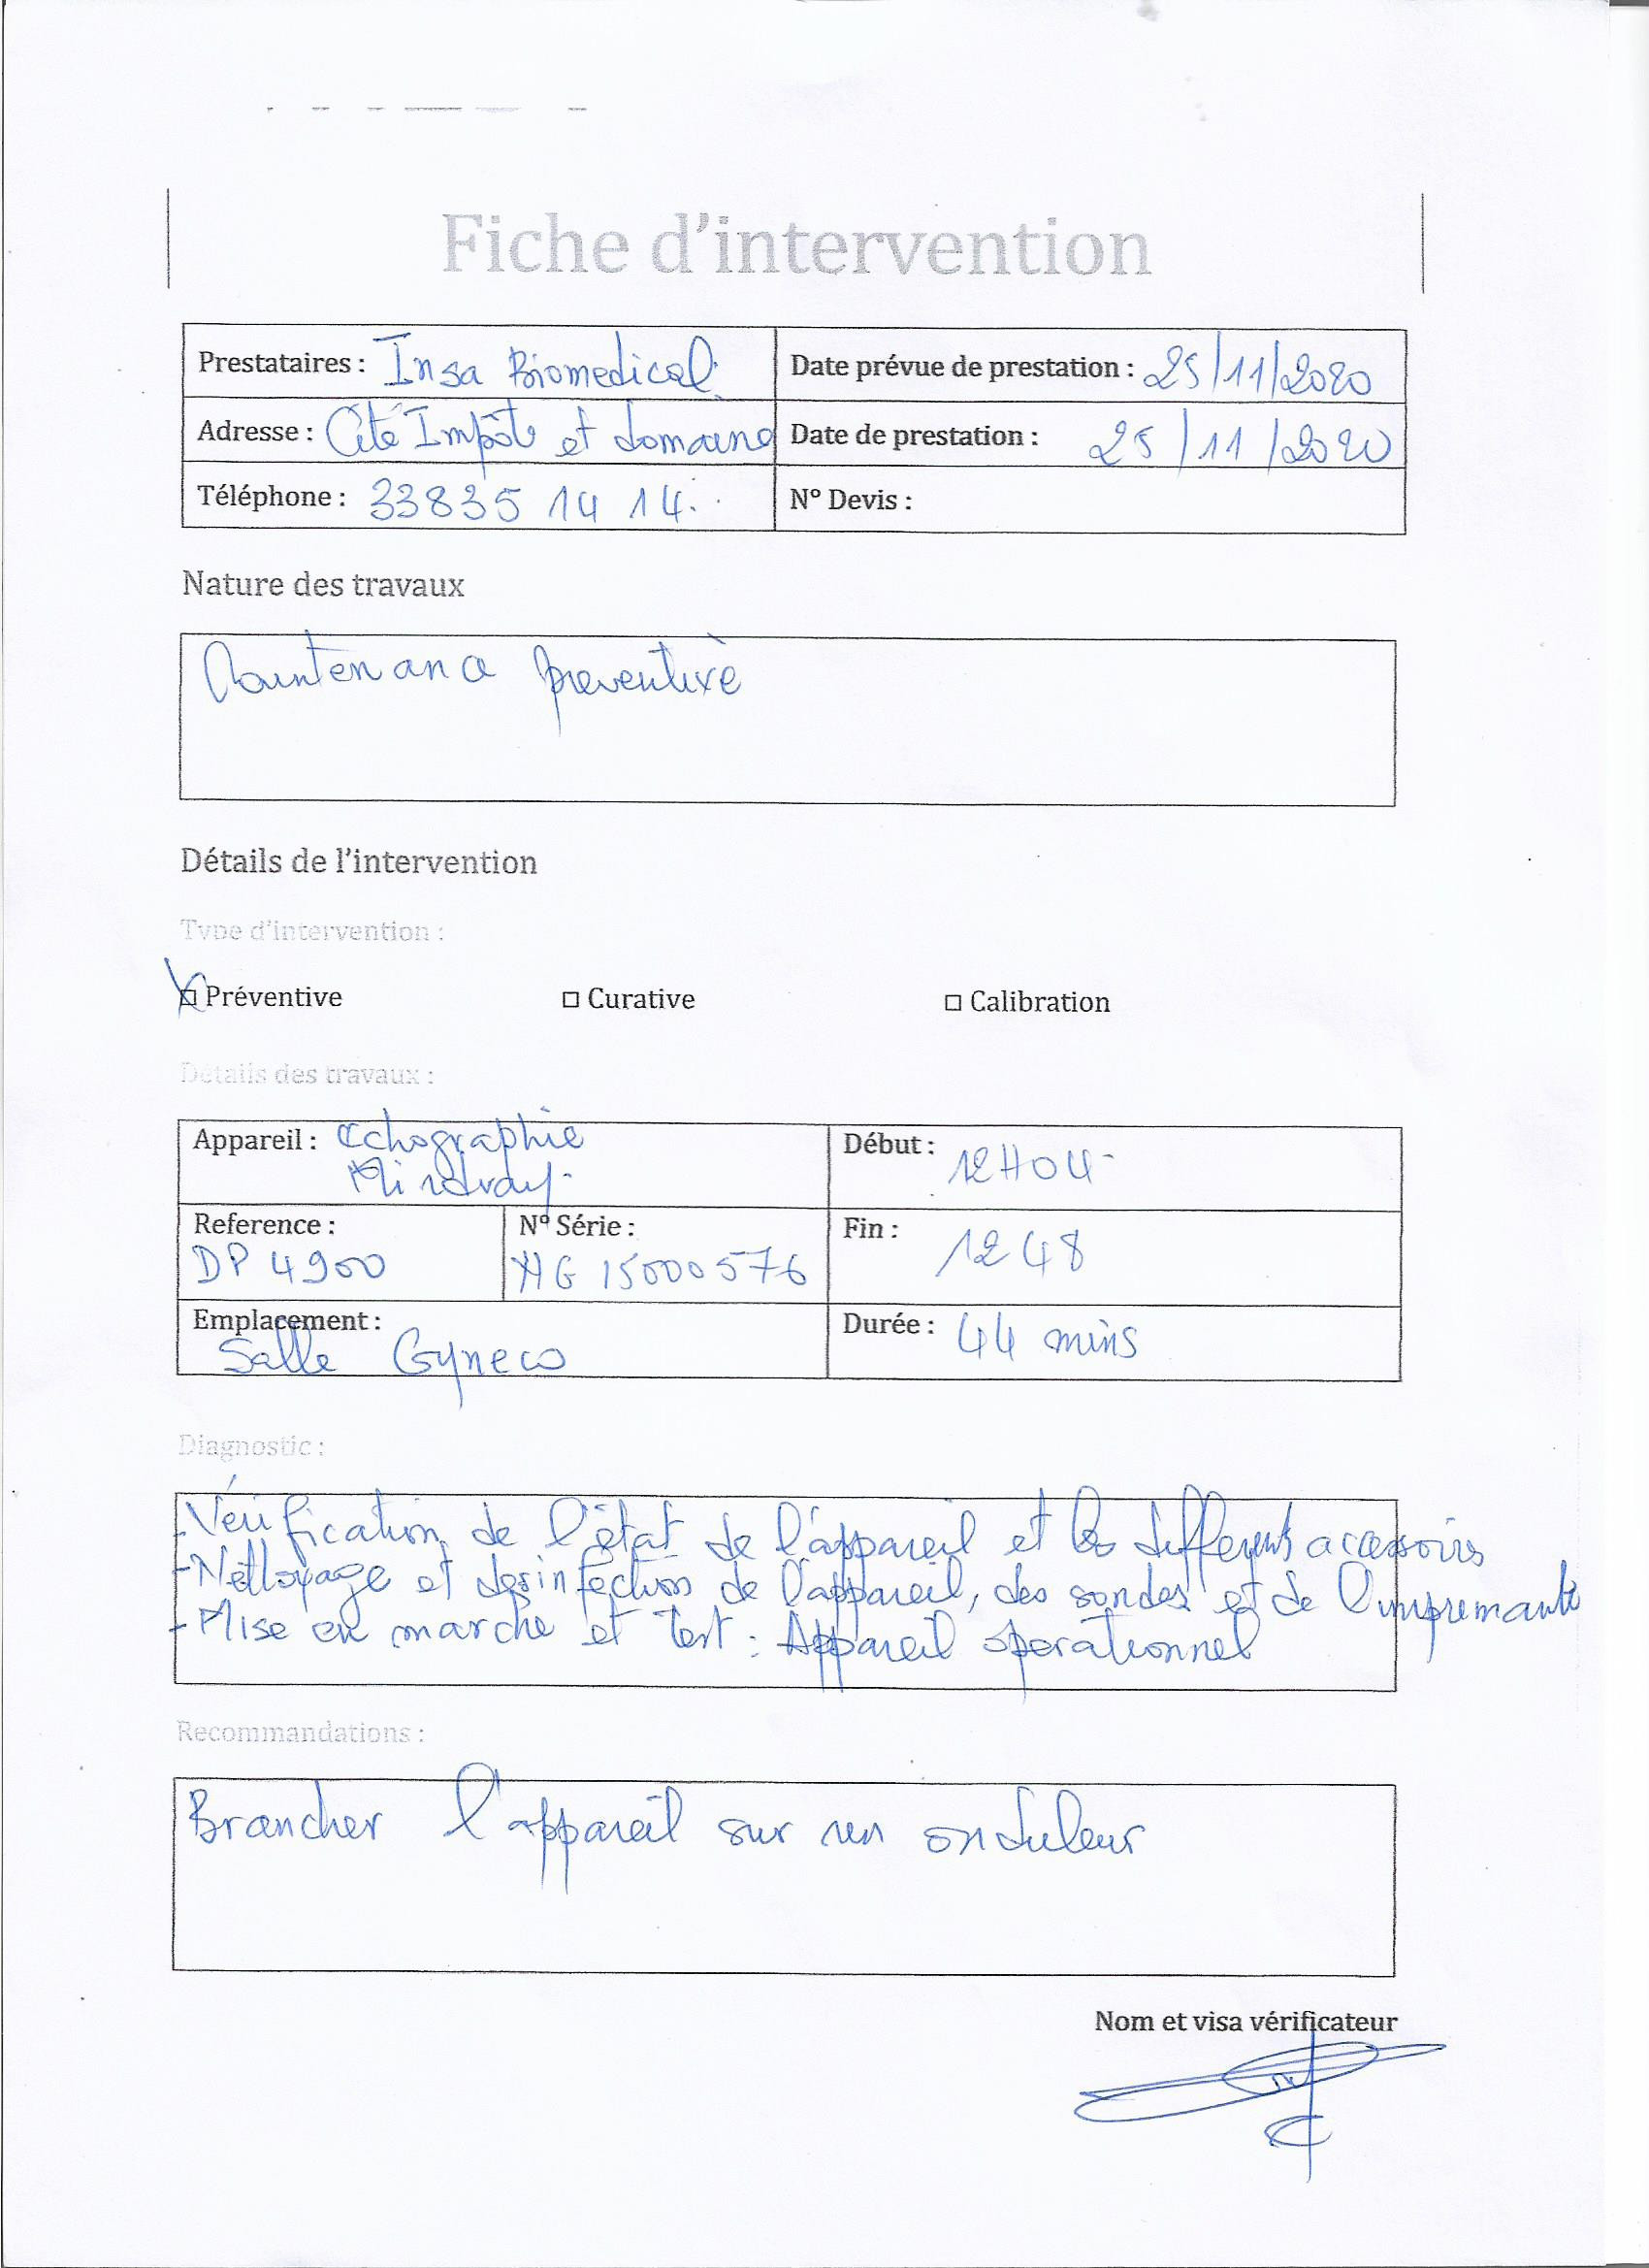 Fiche d'intervention
Prestataires : Insa Biomedical
Date prévue de prestation : 25/11/2020
Adresse : Cité Impôts et domaine
Date de prestation : 25/11/2020
Téléphone : 33835 14 14.
N° Devis :
Nature des travaux
Maintenance preventive
Détails de l'intervention
Type d'intervention :
Préventive
□ Curative
□ Calibration
Détails des travaux :
Appareil : Echographie
Mindray
Début : 12H04
Reference :
DP 4900
N° Série :
15000576
Fin : 1248
Emplacement :
Salle Gyneco
Durée : 44 mins
Diagnostic :
- Vérification de l'état de l'appareil et les differents accessoires
- Nettoyage et desinfection de l'appareil, des sondes et de l'imprimante
- Mise en marche et test : Appareil operationnel
Recommandations :
Brancher l'appareil sur un onduleur
Nom et visa vérificateur